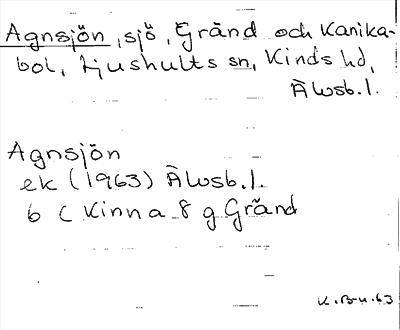 Agnsjön, sjö, Gränd och Kanika-
bol, Ljushults sn, Kinds hd,
Älvsb. l.
Agnsjön
ek (1963) Älvsb. l.
6 C Kinna 8 g Gränd